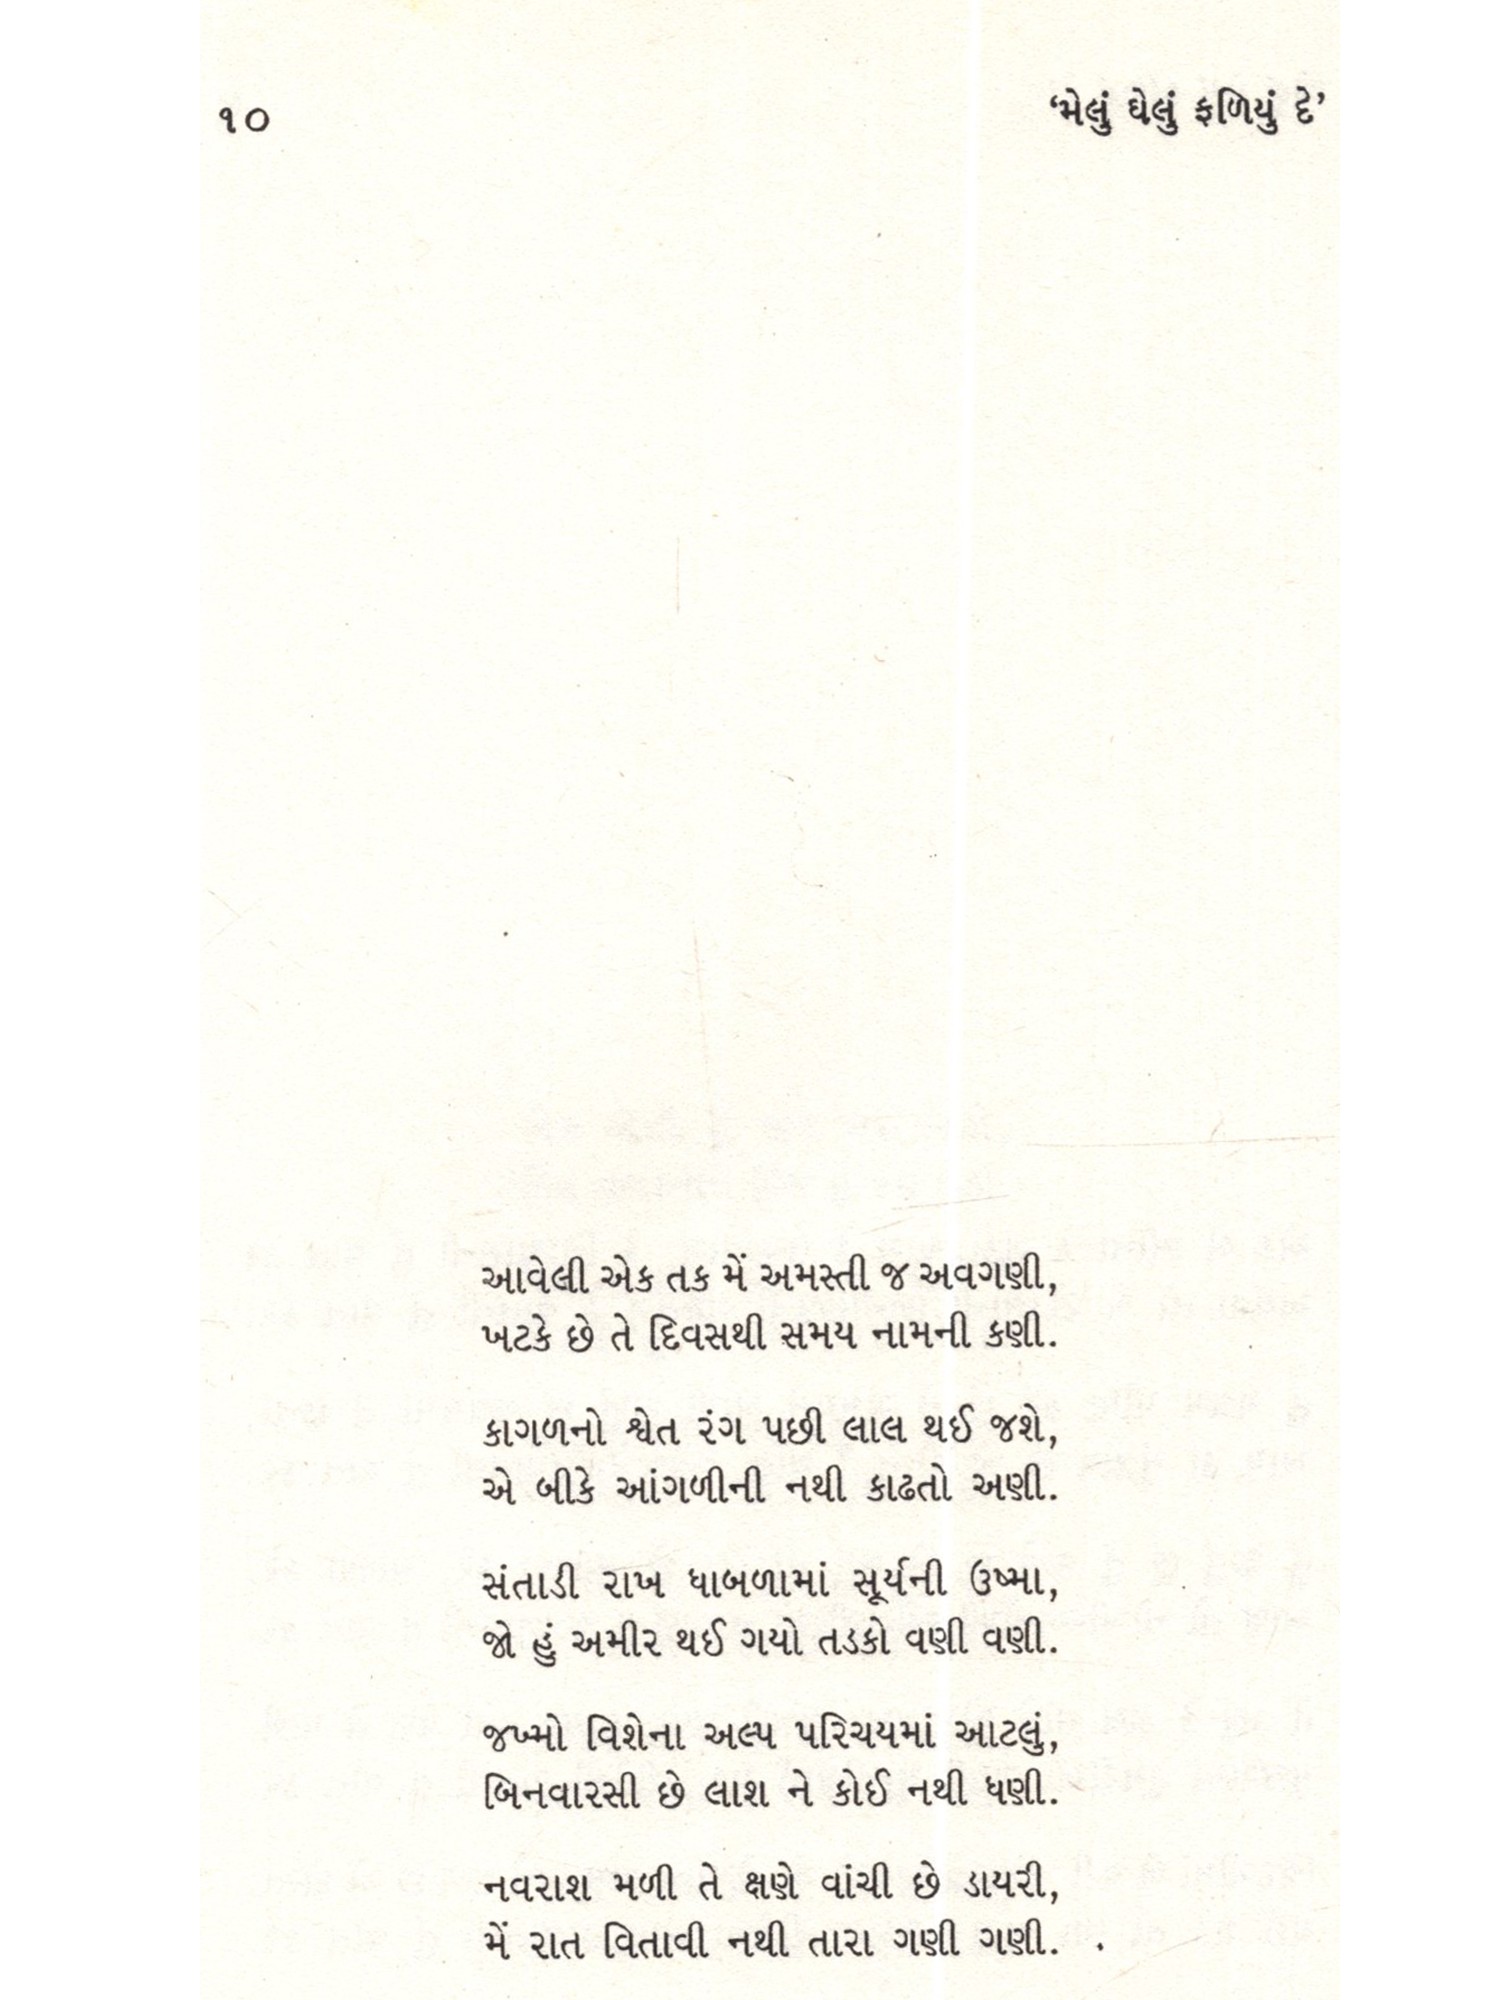 ૧૦
‘મેલું ઘેલું ફળિયું દે’
આવેલી એક તક મેં અમસ્તી જ અવગણી,
ખટકે છે તે દિવસથી સમય નામની કણી.
કાગળનો શ્વેત રંગ પછી લાલ થઈ જશે,
એ બીકે આંગળીની નથી કાઢતો અણી.
સંતાડી રાખ ધાબળામાં સૂર્યની ઉષ્મા,
જો હું અમીર થઈ ગયો તડકો વણી વણી.
જખ્મો વિશેના અલ્પ પરિચયમાં આટલું,
બિનવારસી છે લાશ ને કોઈ નથી ધણી.
નવરાશ મળી તે ક્ષણે વાંચી છે ડાયરી,
મેં રાત વિતાવી નથી તારા ગણી ગણી.